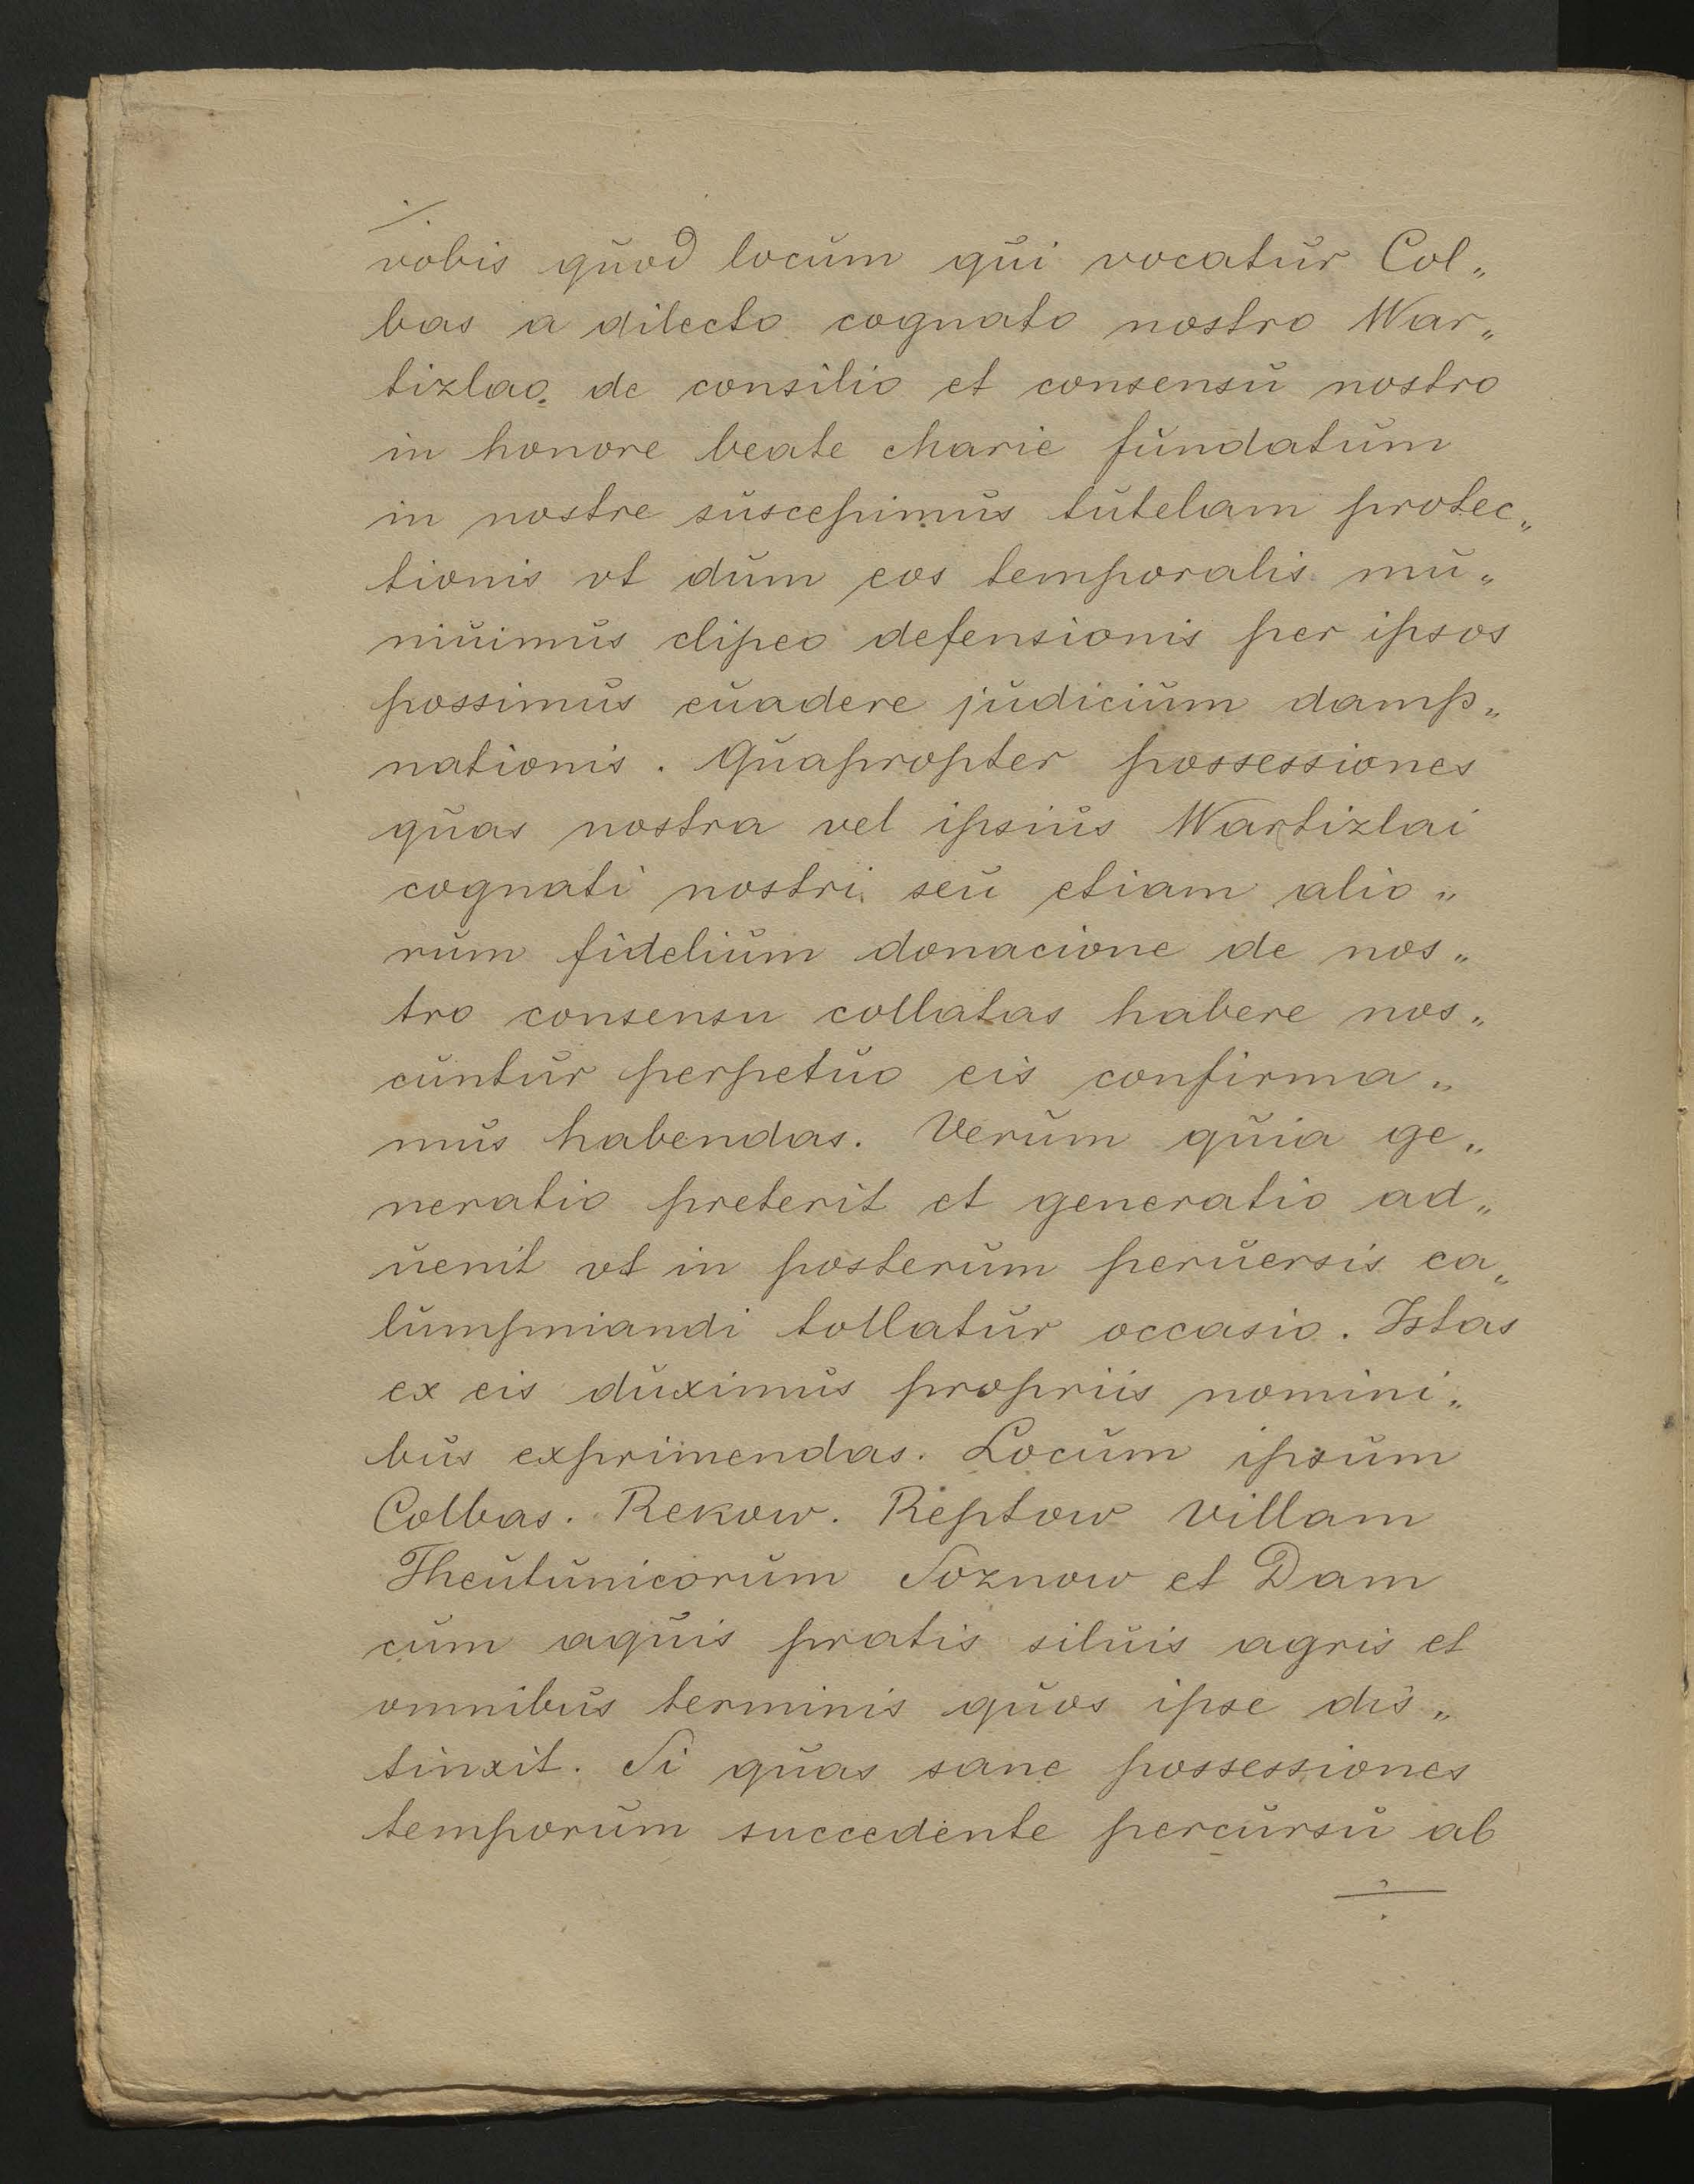 vobis quod locum qui vocatur Col„
bas a dilecto cognato nostro War„
tizlao. de consilio et consensu nostro
in honore beate Marie fundatum
in nostre suscepimus tutelam protec„
tionis vt dum eos temporalis mu„
niuimus clipeo defensionis per ipsos
possimus euadere judicium damp„
nationis. Quapropter possessiones
quas nostra vel ipsius Wartizlai
cognati nostri seu etiam alio„
rum fidelium donacione de nos„
tro consensu collatas habere nos„
cuntur perpetuo eis confirma„
mus habendas. Verum quia ge„
neratio preterit et generatio ad„
uenit vt in posterum peruersis ca„
lumpniandi tollatur occasio. Istas
ex eis duximus propriis nomini„
bus exprimendas. Locum ipsum
Colbas. Rekow. Reptow villam
Theutunicorum Soznow et Dam
cum aquis pratis siluis agris et
omnibus terminis quos ipse dis„
tinxit. Si quas sane possessiones
temporum succedente percursu ab